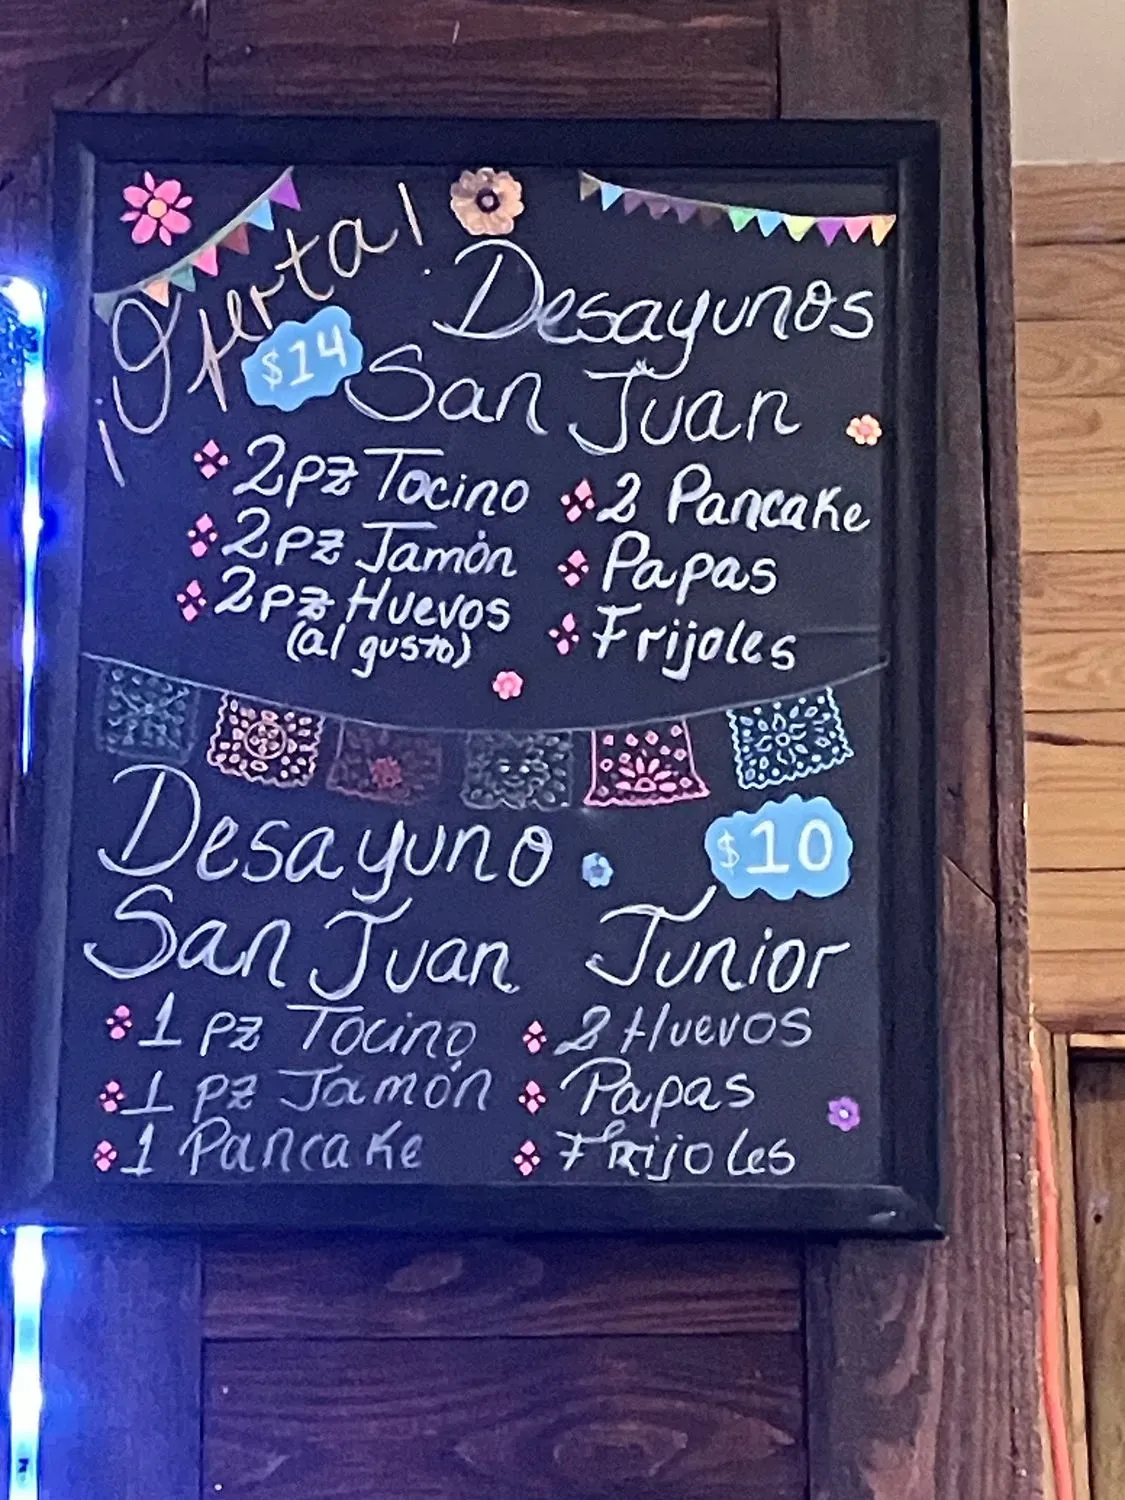 ¡Oferta!
Desayunos
$14
San Juan
2pz Tocino
2pz Jamón
2pz Huevos
(al gusto)
2 Pancake
Papas
Frijoles
Desayuno
$10
San Juan Junior
1 pz Tocino
1 pz Jamón
1 Pancake
2 Huevos
Papas
Frijoles